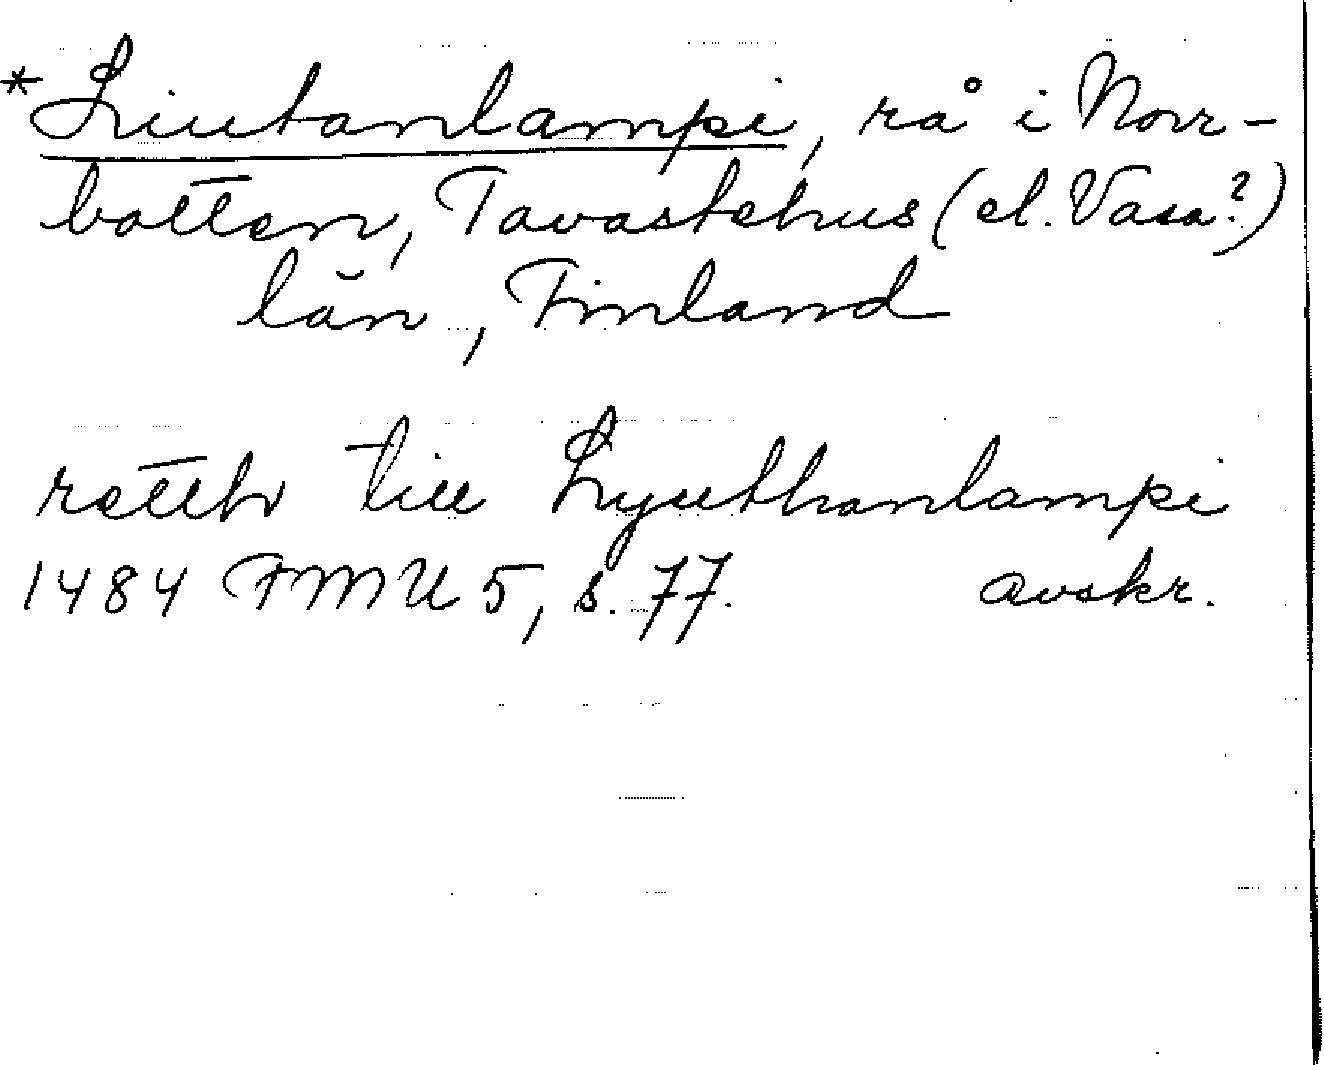 *Liutanlampi, rå i Norr-
botten, Tavastehus (el. Vasa?)
län, Finland
retth till Lyuthanlampi
1484 FMU 5, s. 77. avskr.